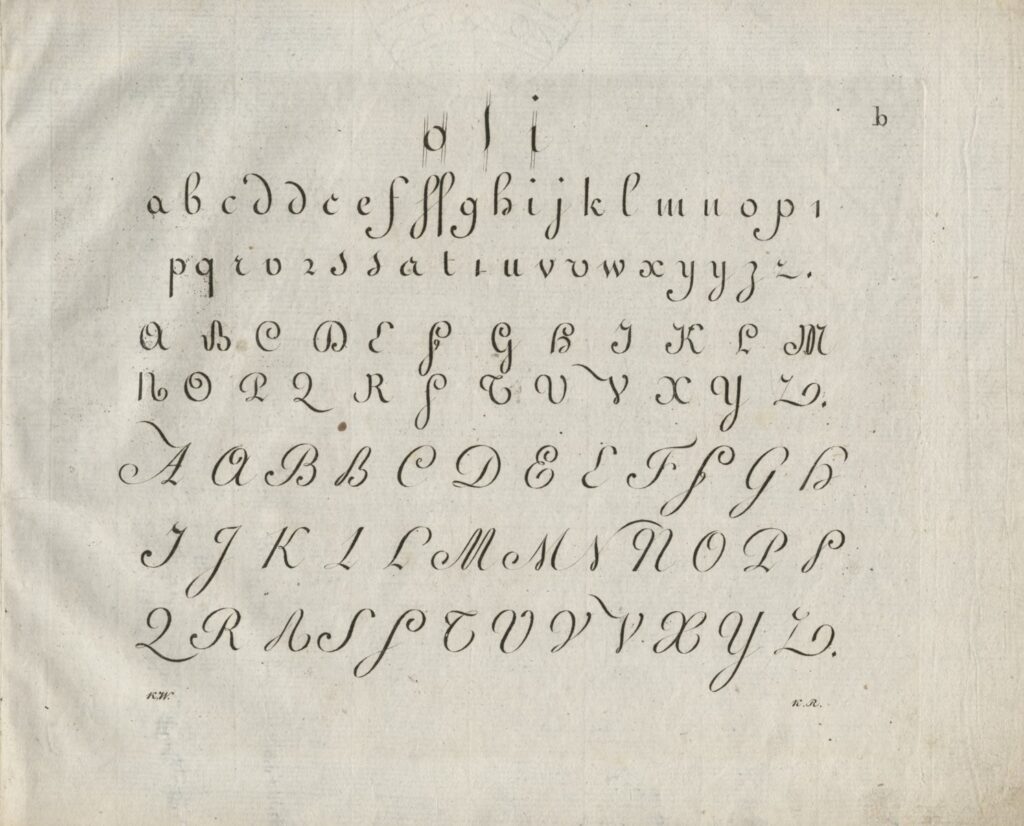 b
o ſ i
a b c d d c e f ſſ g h i j k l m n o p ı
p q r v 2 s s a t ı u v v w x y y z z.
A B C D E F G H I K L M
N O P Q R S T U V X Y Z.
A A B B C D E E F F G H
I J K L L M M N N O P P
Q R R S S T U V V X Y Z.
K.W.
K.R.